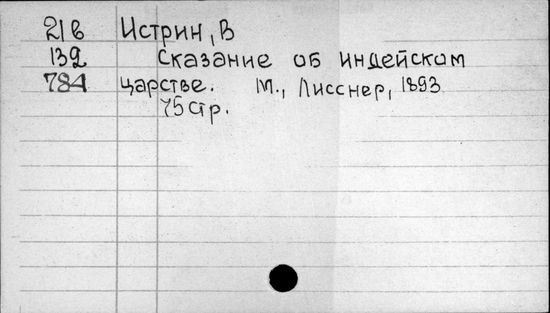 21в Истрин, В
132 Сказание об индейском
784 царстве. М., Лисснер, 1893
75 стр.